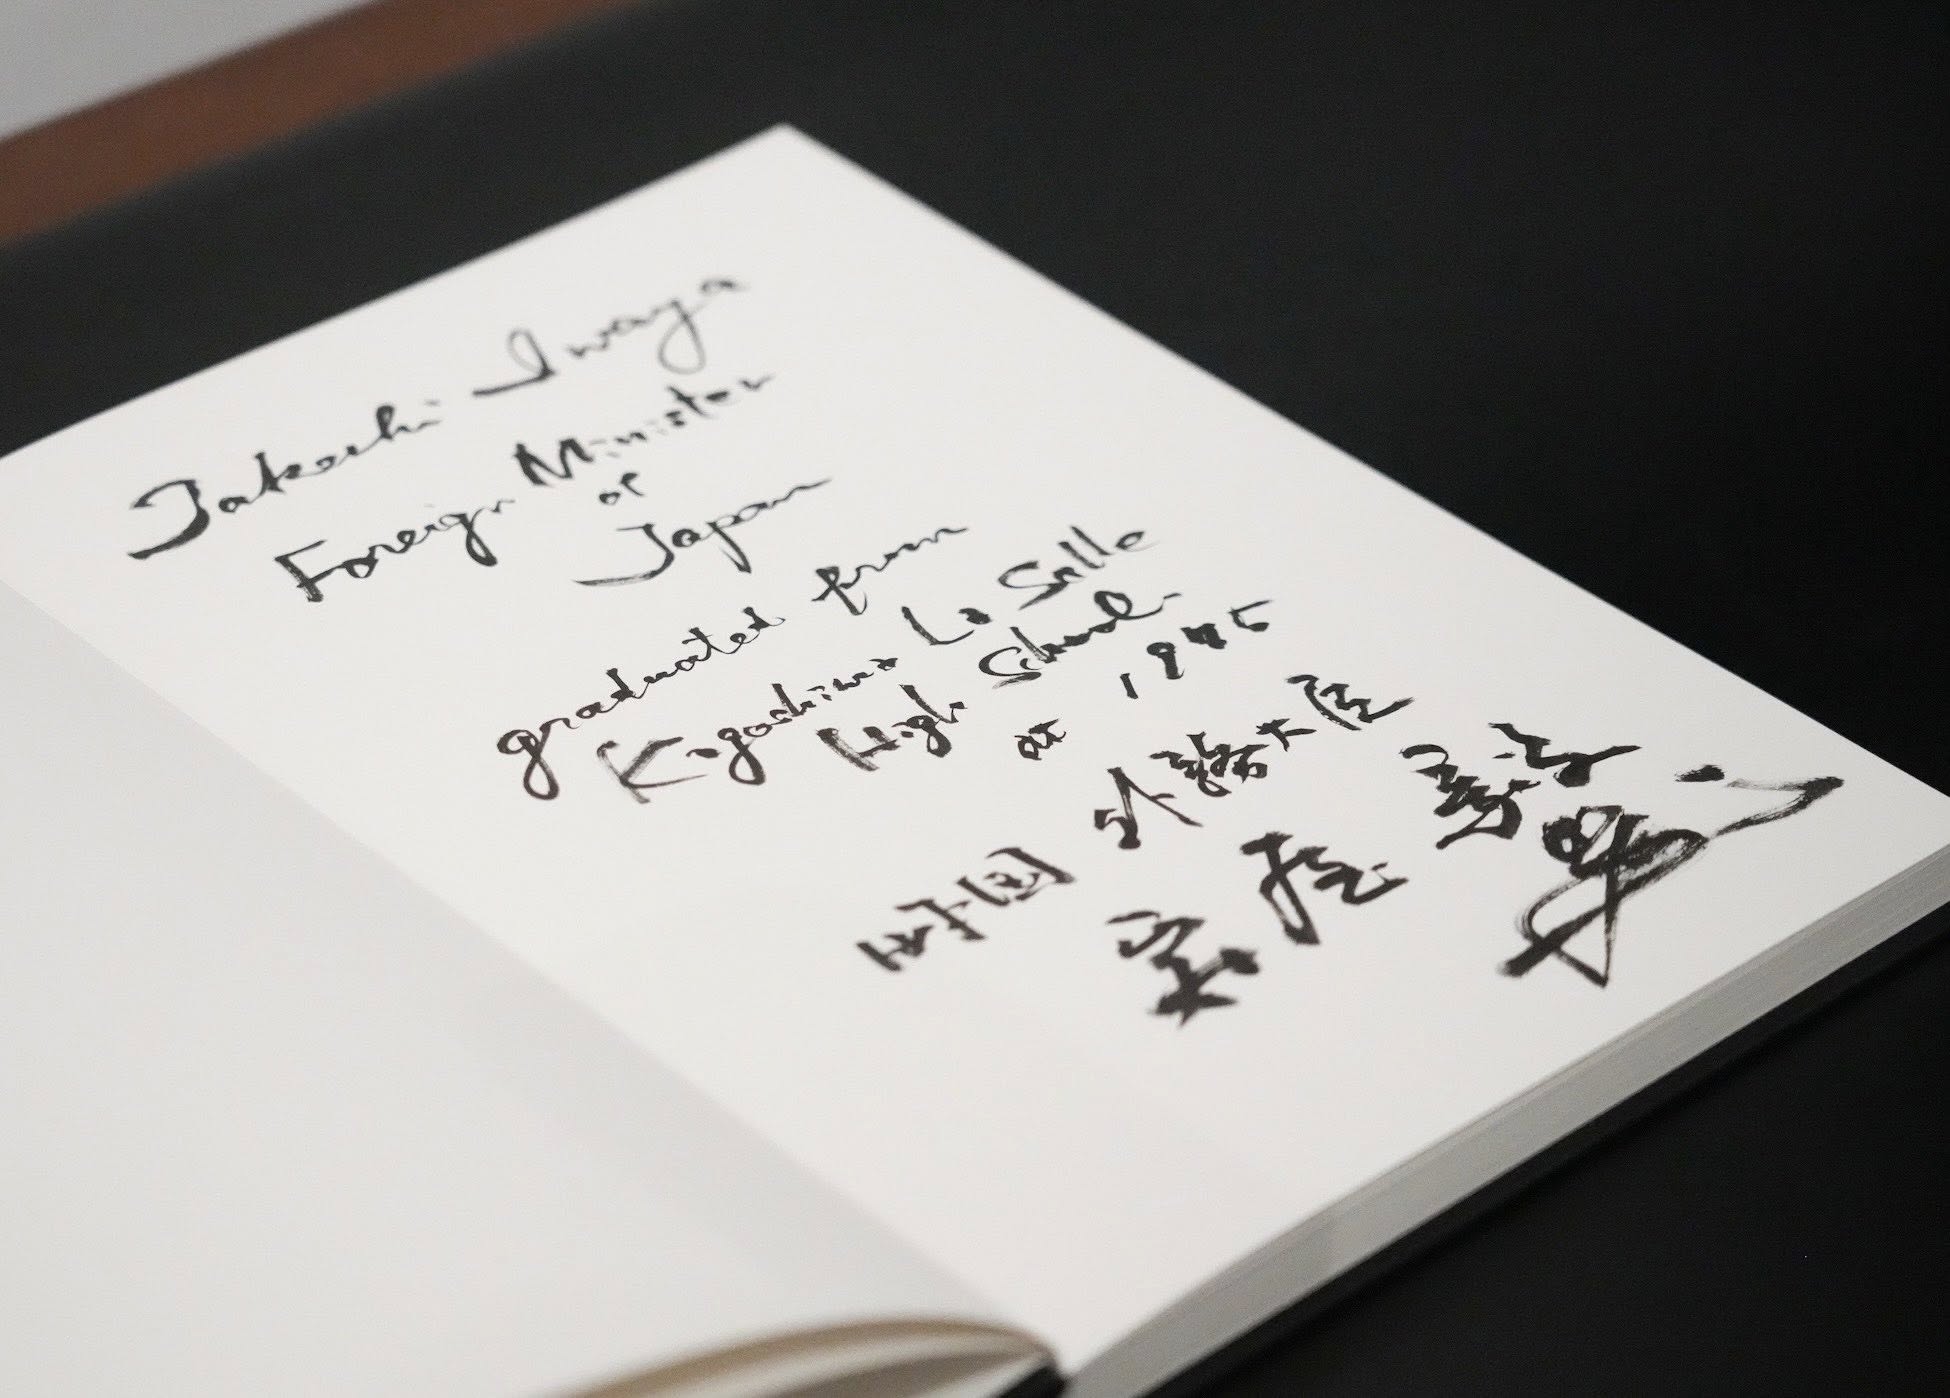 Takeshi Iwaya
Foreign Minister
of
Japan
graduated from
Kagoshima La Salle
High School.
at 1975
日本国 外務大臣
岩屋 毅